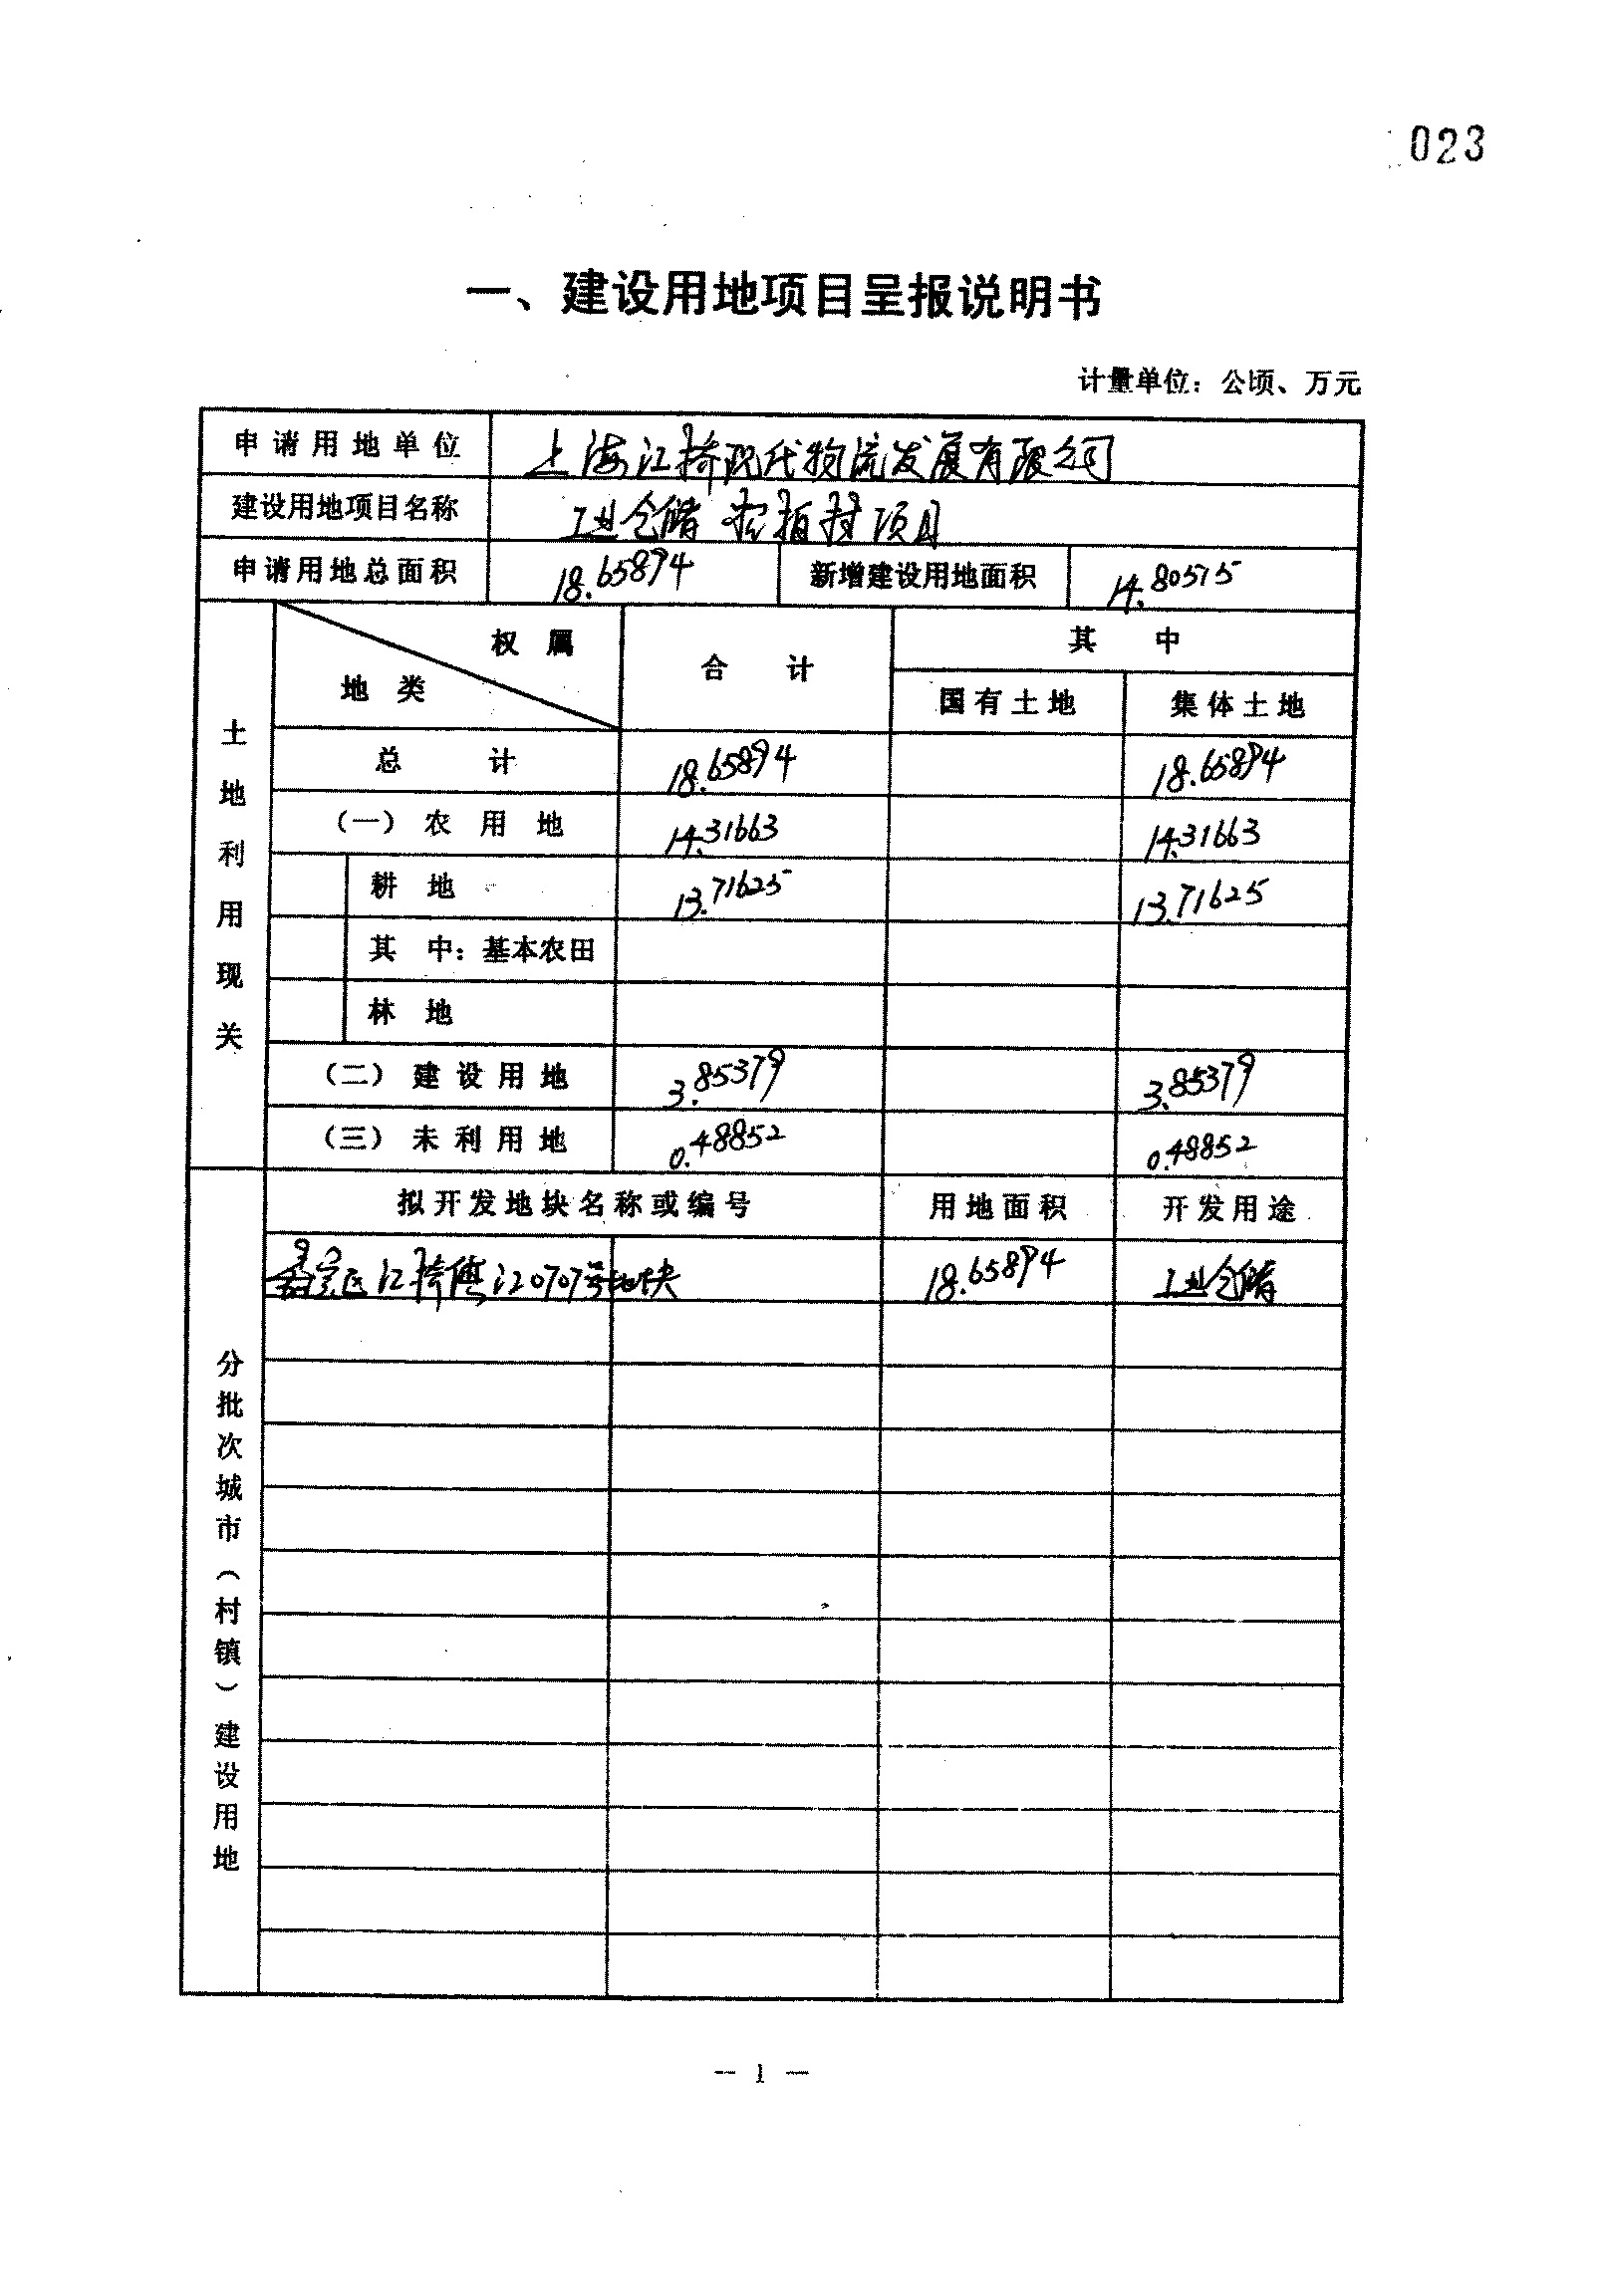 023
一、建设用地项目呈报说明书
计量单位：公顷、万元
申请用地单位 上海江桥现代物流发展有限公司
建设用地项目名称 工业仓储 招拍挂项目
申请用地总面积 18.65894 新增建设用地面积 14.80515
土地利用现关
权属 地类 合计 其中
国有土地 集体土地
总计 18.65894 18.65894
（一）农用地 14.31663 14.31663
耕地 13.71625 13.71625
其中：基本农田
林地
（二）建设用地 3.85379 3.85379
（三）未利用地 0.48852 0.48852
分批次城市（村镇）建设用地
拟开发地块名称或编号 用地面积 开发用途
嘉定区江桥镇 120707号地块 18.65894 工业仓储
— 1 —